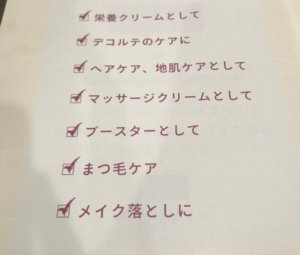 栄養クリームとして
デコルテのケアに
ヘアケア、地肌ケアとして
マッサージクリームとして
ブースターとして
まつ毛ケア
メイク落としに